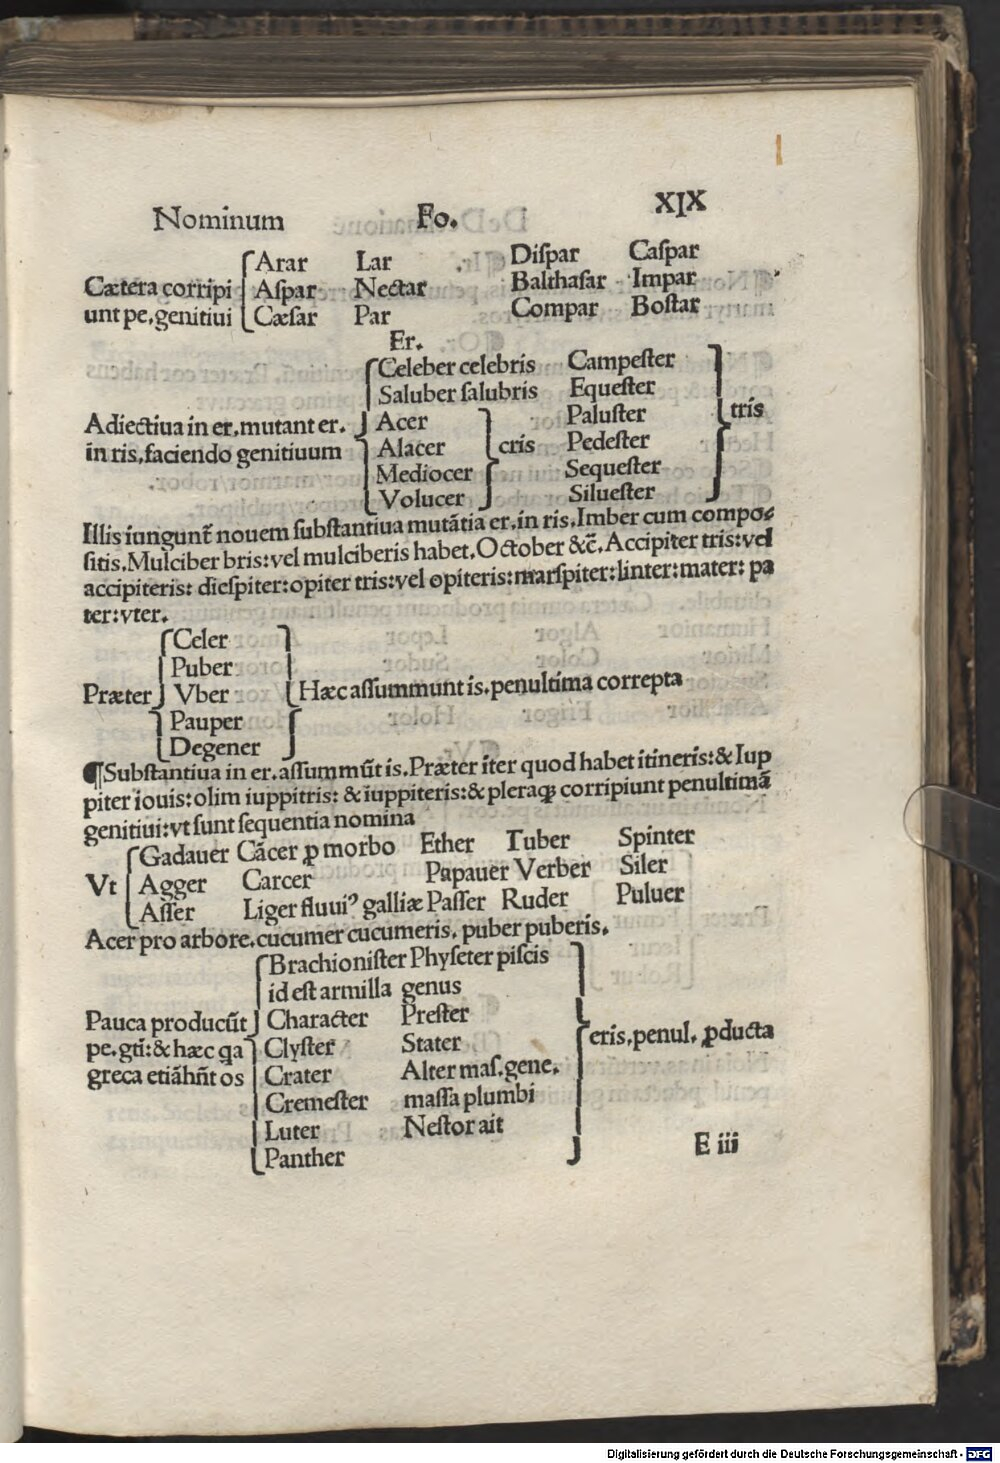 Nominum Fo. XIX
Arar Lar Diſpar Caſpar
Cætera corripi Aſpar Nectar Balthaſar Impar
unt pe.genitiui Cæſar Par Compar Boſtar
Er.
Celeber celebris Campeſter
Saluber ſalubris Equeſter
Adiectiua in er.mutant er. Acer Paluſter tris
in ris.faciendo genitiuum Alacer cris Pedeſter
Mediocer Sequeſter
Volucer Silueſter
Illis iungunt̄ nouem ſubſtantiua mutātia er.in ris.Imber cum compo⸗
ſitis.Mulciber bris:vel mulciberis habet.October &c̄.Accipiter tris:vel
accipiteris: dieſpiter:opiter tris:vel opiteris:marſpiter:linter:mater: pa
ter:vter.
Celer
Puber
Præter Vber Hæc aſſummunt is.penultima correpta
Pauper
Degener
¶Subſtantiua in er.aſſummūt is.Præter iter quod habet itineris:& Iup
piter iouis:olim iuppitris: & iuppiteris:& pleraqꝫ corripiunt penultimā
genitiui:vt ſunt ſequentia nomina
Gadauer Cācer ꝓ morbo Ether Tuber Spinter
Vt Agger Carcer Papauer Verber Siler
Aſſer Liger fluuiꝰ galliæ Paſſer Ruder Puluer
Acer pro arbore.cucumer cucumeris. puber puberis.
Brachioniſter Phyſeter piſcis
id eſt armilla genus
Pauca producūt Character Preſter
pe.gti̅:& hæc qa Clyſter Stater eris.penul. ꝓducta
greca etiāhn̄t os Crater Alter maſ.gene.
Cremeſter maſſa plumbi
Luter Neſtor ait
Panther
E iii
Digitalisierung gefördert durch die Deutsche Forschungsgemeinschaft - DFG